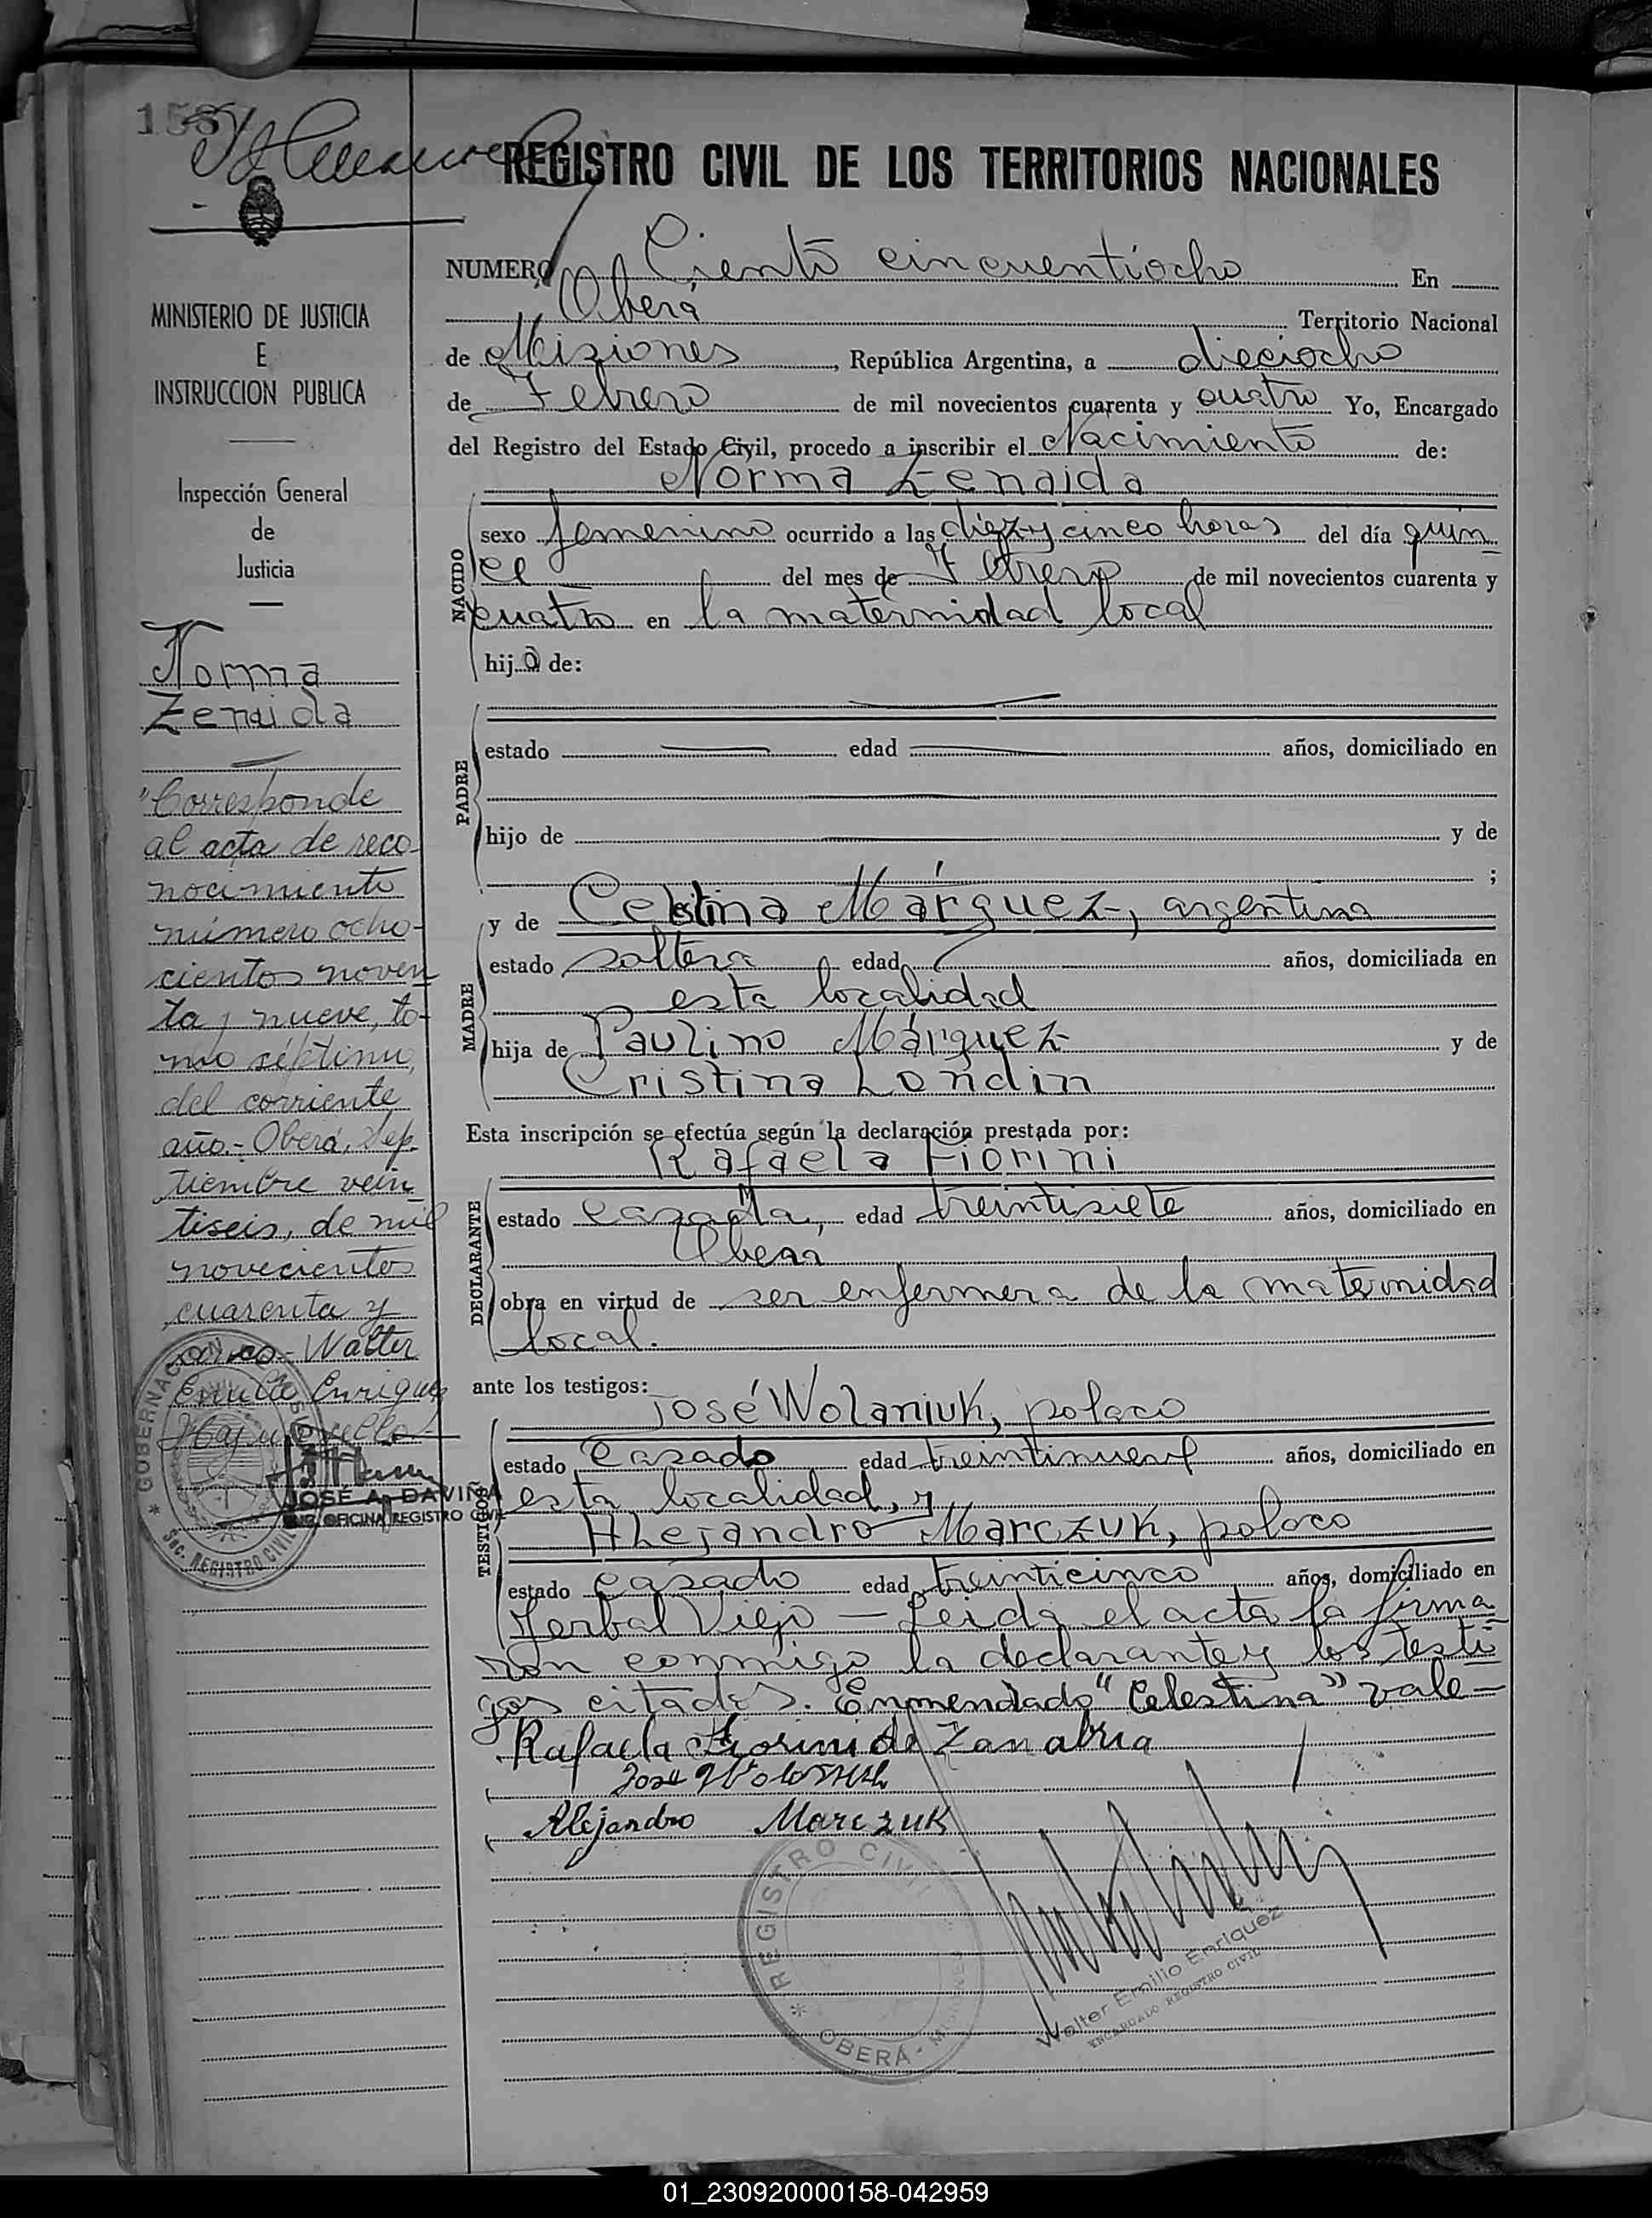 158
REGISTRO CIVIL DE LOS TERRITORIOS NACIONALES
NUMERO Ciento cincuentiocho En
Oberá Territorio Nacional
de Misiones, República Argentina, a dieciocho
de Febrero de mil novecientos cuarenta y cuatro Yo, Encargado
del Registro del Estado Civil, procedo a inscribir el Nacimiento de:
Norma Zenaida
NACIDO
sexo femenino ocurrido a las diez y cinco horas del día quin
ce del mes de Febrero de mil novecientos cuarenta y
cuatro en la maternidad local
hija de:
PADRE
estado edad años, domiciliado en
hijo de y de
;
MADRE
y de Celestina Márquez, argentina
estado soltera edad años, domiciliada en
esta localidad
hija de Paulino Márquez y de
Cristina Londin
Esta inscripción se efectúa según la declaración prestada por:
Rafaela Fiorini
DECLARANTE
estado casada, edad treintisiete años, domiciliado en
Oberá
obra en virtud de ser enfermera de la maternidad
local.
ante los testigos:
TESTIGOS
José Wolaniuk, polaco
estado casado edad treintinueve años, domiciliado en
esta localidad, y
Alejandro Marczuk, polaco
estado casado edad treinticinco años, domiciliado en
Yerbal Viejo — Leida el acta la firma
ron conmigo la declarante y los testi
gos citados. Enmendado "Celestina" vale—
Rafaela Fiorini de Zanabria
José
Alejandro Marczuk
REGISTRO CIVIL
* OBERÁ - MISIONES
Walter Emilio Enriquez
ENCARGADO REGISTRO CIVIL
MINISTERIO DE JUSTICIA
E
INSTRUCCION PUBLICA
Inspección General
de
Justicia
Norma
Zenaida
"Corresponde
al acta de reco-
nocimiento
número ocho-
cientos noven
ta y nueve, to-
mo séptimo,
del corriente
año.- Oberá, Sep-
tiembre vein
tiseis, de mil
novecientos
cuarenta y
cinco - Walter
Emilio Enriquez
Hay un sello
JOSÉ A. DAVIÑA
OFICINA REGISTRO CIVIL
* GOBERNACION
SEC. REGISTRO CIVIL
01_230920000158-042959